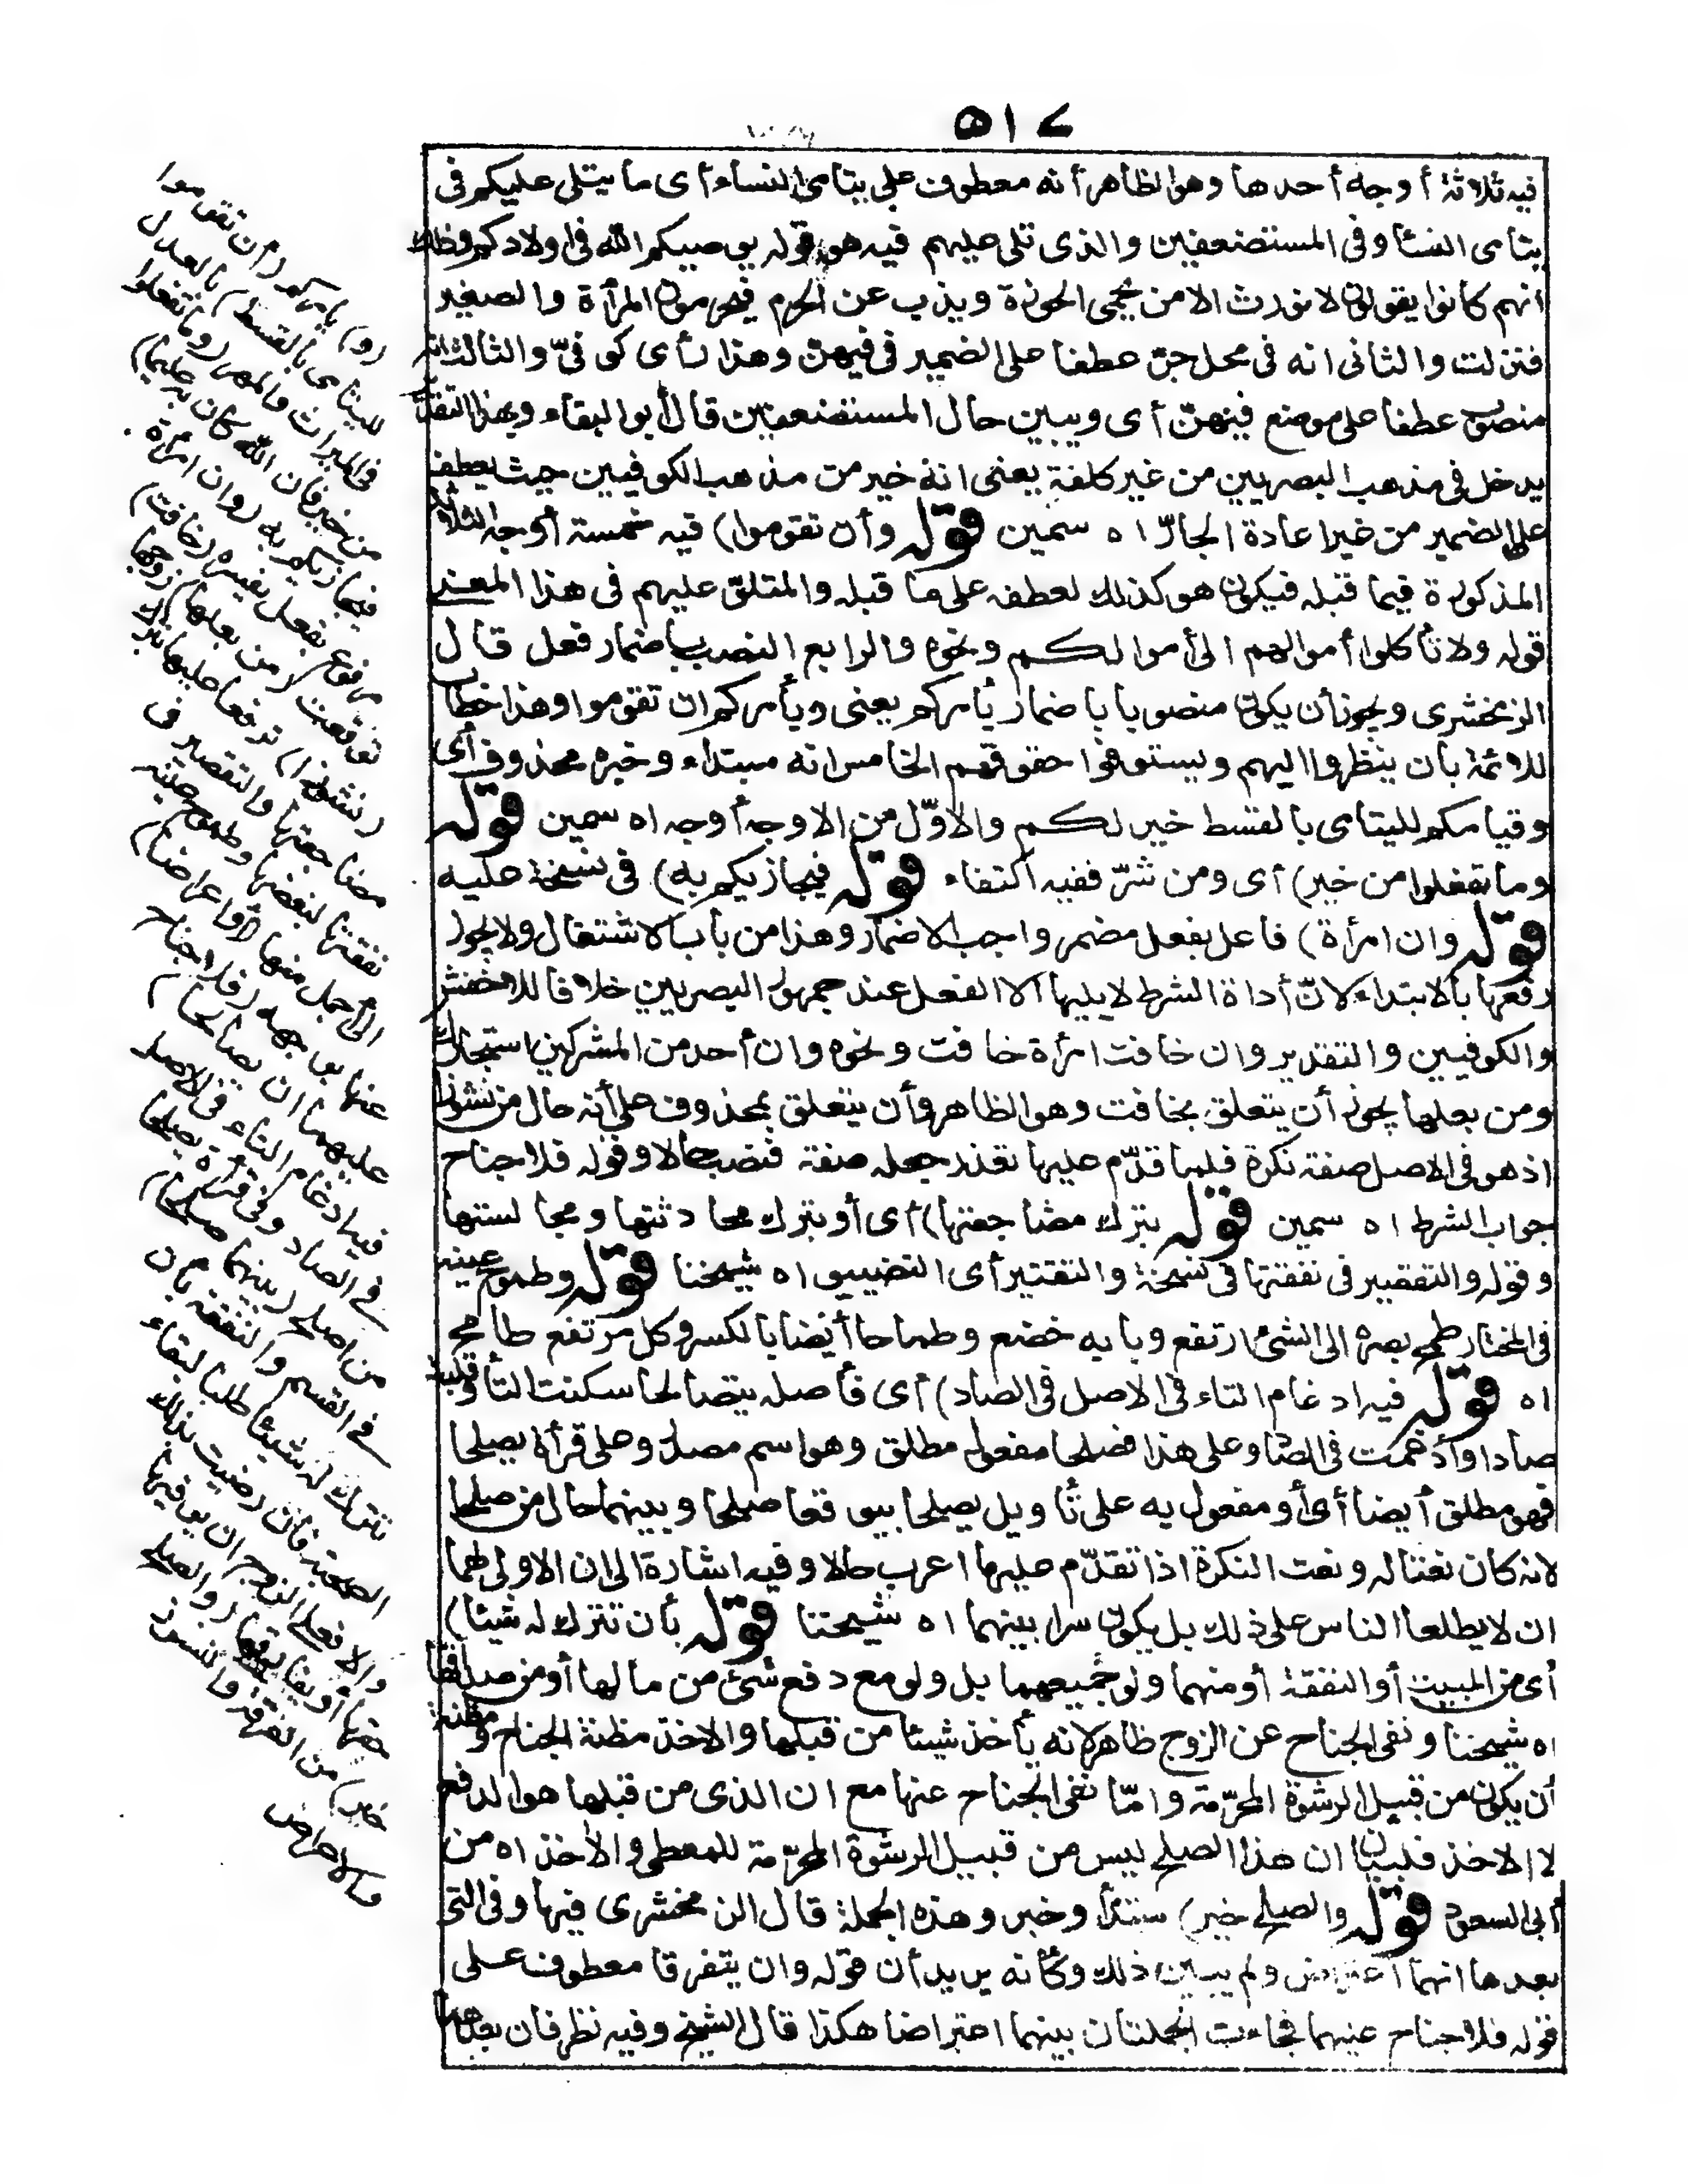 ٥١٧
فيه ثلاثة أوجه أحدها وهو الظاهر أنه معطوف على يتامى النساء أى ما يتلى عليكم فى
يتامى النسا وفى المستضعفين والذى تلى عليهم فيه هو قوله يوصيكم الله فى اولادكم وذلك
انهم كانوا يقولون لا نورث الا من يحمى الحوزة ويذب عن الحرم فيحرمون المرأة والصغير
فنزلت والثانى انه فى محل جرّ عطفا على الضمير فى فيهن وهذا رأى كوفىّ والثالث انه
منصوب عطفا على موضع فيهنّ أى ويبين حال المستضعفين قال أبو البقاء وبهذا التقدير
يدخل فى مذهب البصريين من غير كلفة يعنى انه خير من مذهب الكوفيين حيث يعطف
على الضمير من غير اعادة الجارّ اه سمين قوله وأن تقوموا) فيه خمسة أوجه الثلاثة
المذكورة فيما قبله فيكون هو كذلك لعطفه على ما قبله والمتلوّ عليهم فى هذا المعنى
قوله ولا تأكلوا أموالهم الى أموالكم ونحوه والرابع النصب باضمار فعل قال
الزمخشرى ويجوز أن يكون منصوبا باضمار يأمركم يعنى ويأمركم ان تقوموا وهذا خطاب
للائمة بان ينظروا اليهم ويستوفوا حقوقهم الخامس انه مبتداء وخبره محذوف أى
وقيامكم لليتامى بالقسط خير لكم والاوّل من الاوجه أوجه اه سمين قوله
وما تفعلوا من خير) أى ومن شرّ ففيه اكتفاء قوله فيجازيكم به) فى نسخة عليه
قوله وان امرأة) فاعل بفعل مضمر واجب الاضمار وهذا من باب الاشتغال ولا يجوز
رفعها بالابتداء لانّ أداة الشرط لا يليها الا الفعل عند جمهور البصريين خلافا للاخفش
والكوفيين والتقدير وان خافت امرأة خافت ونحوه وان أحد من المشركين استجارك
ومن بعلها يجوز أن يتعلق بخافت وهو الظاهر وأن يتعلق بمحذوف على أنه حال من نشوزا
اذ هو فى الاصل صفة نكرة فلما قدّم عليها تعذر جعله صفة فنصب حالا وقوله فلا جناح
جواب الشرط اه سمين قوله بترك مضاجعتها) أى أو بترك محادثتها ومجالستها
وقوله والتقصير فى نفقتها فى نسخة والتقتير أى التضييق اه شيخنا قوله وطموح عينه
فى المختار طمح بصره الى الشئ ارتفع وبابه خضع وطماحا أيضا بالكسر وكل مرتفع طامح
اه قوله فيه ادغام التاء فى الاصل فى الصاد) أى فأصله يتصالحا سكنت التاء وقلبت
صادا وأدغمت فى الصاد وعلى هذا فصلحا مفعول مطلق وهو اسم مصدر وعلى قرأة يصلحا
فهو مطلق أيضا أى أو مفعول به على تأويل يصلحا بيوقعا صلحا وبينهما حال من صلحا
لانه كان نعتا له ونعت النكرة اذا تقدّم عليها اعرب حالا وفيه اشارة الى ان الاولى لهما
ان لا يطلعا الناس على ذلك بل يكون سرا بينهما اه شيخنا قوله بأن تترك له شيئا)
أى من المبيت أو النفقة أو منهما ولو جميعهما بل ولو مع دفع شئ من مالها أو من صداقها
اه شيخنا ونفى الجناح عن الزوج ظاهر لانه يأخذ شيئا من قبلها والاخذ مظنة الجناح ومظنة
أن يكون من قبيل الرشوة المحرّمة وامّا نفى الجناح عنها مع ان الذى من قبلها هو الدفع
لا الاخذ فلبيان ان هذا الصلح ليس من قبيل الرشوة المحرّمة للمعطى والأخذ اه من
أبى السعود قوله والصلح خير) مبتدأ وخبر وهذه الجملة قال الزمخشرى فيها وفى التى
بعدها انهما اعتراض ولم يبين ذلك وكأنه يريد أن قوله وان يتفرقا معطوف على
قوله فلا جناح عليهما فجاءت الجملتان بينهما اعتراضا هكذا قال الشيخ وفيه نظر فان بعدهما
(و) يأمركم (أن تقوموا
لليتامى بالقسط) بالعدل
فى الميراث والمهر (وما تفعلوا
من خير فان الله كان به عليما)
فيجازيكم به (وان امرأة)
مرفوع بفعل يفسره (خافت)
توقعت (من بعلها) زوجها
(نشوزا) ترفعا عليها بترك
مضاجعتها والتقصير فى
نفقتها لبغضها وطموح عينه
الى أجمل منها (أو اعراضا)
عنها بوجهه (فلا جناح
عليهما ان يصالحا)
فيه ادغام التاء فى الاصل
فى الصاد وفى قرأة يصلحا
من أصلح (بينهما صلحا)
فى القسم والنفقة بأن
تترك له شيئا طلبا لبقاء
الصحبة فان رضيت بذلك
والا فعلى الزوج ان يوفيها
حقها أو يفارقها (والصلح
خير) من الفرقة والنشوز
والاعراض